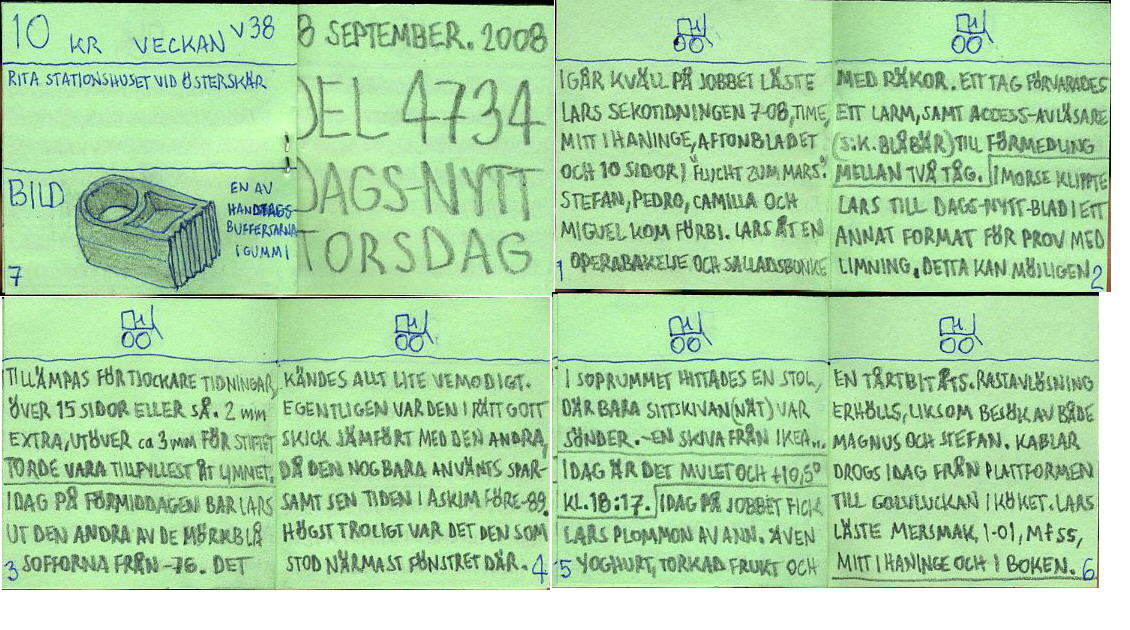 10 KR VECKAN V38
RITA STATIONSHUSET VID ÖSTERSKÄR
BILD
EN AV
HANDTAGS-
BUFFERTARNA
I GUMMI
7
8 SEPTEMBER. 2008
DEL 4734
DAGS-NYTT
TORSDAG
I GÅR KVÄLL PÅ JOBBET LÄSTE
LARS SEKOTIDNINGEN 7-08, TIME,
MITT I HANINGE, AFTONBLADET
OCH 10 SIDOR I "FLUCHT ZUM MARS".
STEFAN, PEDRO, CAMILLA OCH
MIGUEL KOM FÖRBI. LARS ÅT EN
OPERABAKELSE OCH SALLADSBUNKE
1
MED RÄKOR. ETT TAG FÖRVARADES
ETT LARM, SAMT ACCESS-AVLÄSARE
(S.K. BLÅBÄR) TILL FÖRMEDLING
MELLAN TVÅ TÅG. I MORSE KLIPPTE
LARS TILL DAGS-NYTT-BLAD I ETT
ANNAT FORMAT FÖR PROV MED
LIMNING. DETTA KAN MÖJLIGEN
2
TILLÄMPAS FÖR TJOCKARE TIDNINGAR,
ÖVER 15 SIDOR ELLER SÅ. 2 mm
EXTRA, UTÖVER ca 3 mm FÖR STIFTET
TORDE VARA TILLFYLLEST ÅT LIMMET.
IDAG PÅ FÖRMIDDAGEN BAR LARS
UT DEN ANDRA AV DE MÖRKBLÅ
SOFFORNA FRÅN -76. DET
3
KÄNDES ALLT LITE VEMODIGT.
EGENTLIGEN VAR DEN I RÄTT GOTT
SKICK JÄMFÖRT MED DEN ANDRA,
DÅ DEN NOG BARA ANVÄNTS SPAR-
SAMT SEN TIDEN I ASKIM FÖRE -89.
HÖGST TROLIGT VAR DET DEN SOM
STOD NÄRMAST FÖNSTRET DÄR.
4
I SOPRUMMET HITTADES EN STOL,
DÄR BARA SITTSKIVAN (NÄT) VAR
SÖNDER. -EN SKIVA FRÅN IKEA...
IDAG ÄR DET MULET OCH +10,5°
KL. 18:17. IDAG PÅ JOBBET FICK
LARS PLOMMON AV ANN. ÄVEN
YOGHURT, TORKAD FRUKT OCH
5
EN TÅRTBIT ÅTS. RASTAVLÖSNING
ERHÖLLS, LIKSOM BESÖK AV BÅDE
MAGNUS OCH STEFAN. KABLAR
DROGS IDAG FRÅN PLATTFORMEN
TILL GOLVLUCKAN I KÖKET. LARS
LÄSTE MERSMAK, 1-01, Mf 55,
MITT I HANINGE OCH I BOKEN.
6